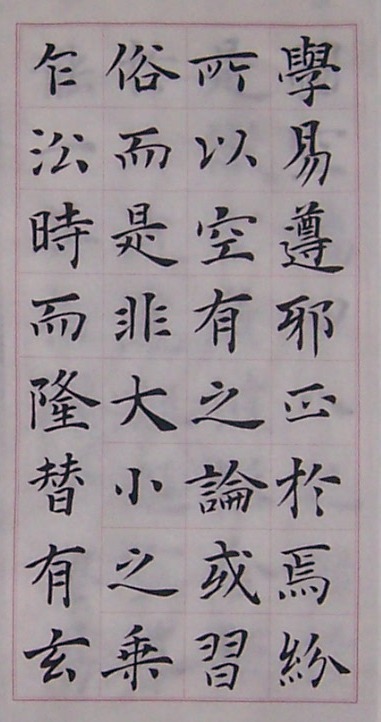 學易遵邪正於焉紛
所以空有之論或習
俗而是非大小之乗
乍㳂時而隆替有玄